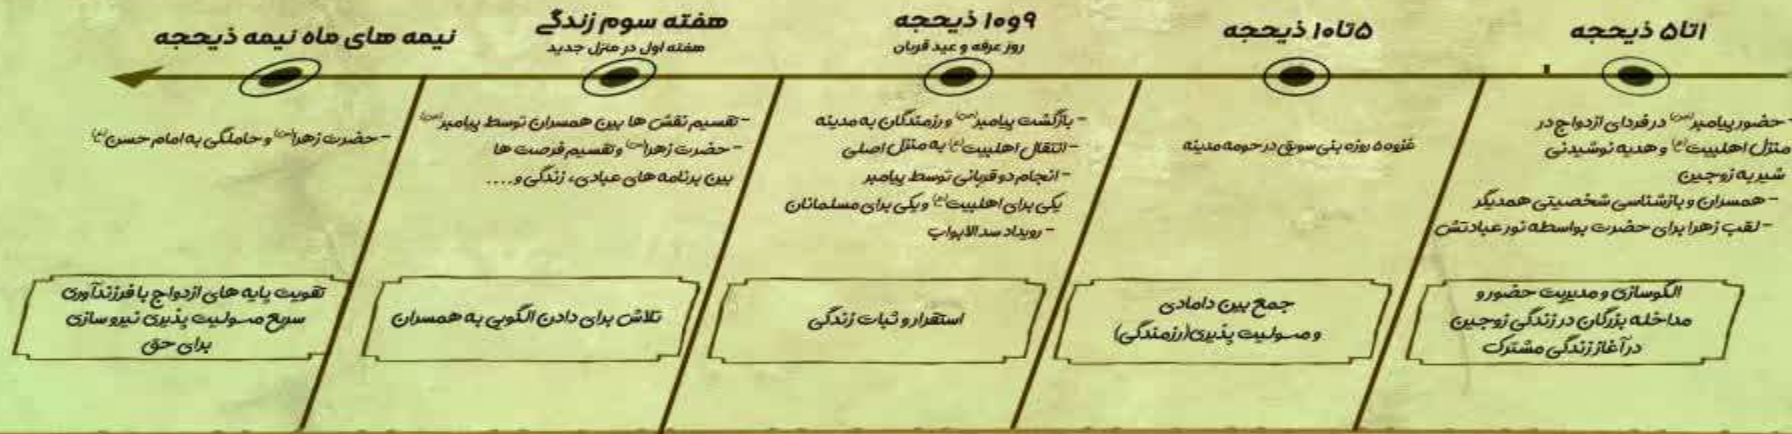 ۱تا۵ ذیحجه
- حضور پیامبر(ص) در فردای ازدواج در
منزل اهلبیت(ع) و هدیه نوشیدنی
شیر به زوجین
- همسران و بازشناسی شخصیتی همدیگر
- لقب زهرا برای حضرت بواسطه نور عبادتش
الگوسازی و مدیریت حضور و
مداخله بزرگان در زندگی زوجین
در آغاز زندگی مشترک
۵تا۱۰ ذیحجه
غزوه ۵ روزه بنی سویق در حومه مدینه
جمع بین دامادی
و مسولیت پذیری(رزمندگی)
۹و۱۰ ذیحجه
روز عرفه و عید قربان
- بازگشت پیامبر(ص) و رزمندگان به مدینه
- انتقال اهلبیت(ع) به منزل اصلی
- انجام دو قربانی توسط پیامبر
یکی برای اهلبیت(ع) و یکی برای مسلمانان
- رویداد سد الابواب
استقرار و ثبات زندگی
هفته سوم زندگی
هفته اول در منزل جدید
- تقسیم نقش ها بین همسران توسط پیامبر(ص)
- حضرت زهرا(س) و تقسیم فرصت ها
بین برنامه های عبادی، زندگی و....
تلاش برای دادن الگویی به همسران
نیمه های ماه نیمه ذیحجه
- حضرت زهرا(س) و حاملگی به امام حسن(ع)
تقویت پایه های ازدواج با فرزندآوری
سریع مسولیت پذیری نیرو سازی
برای حق